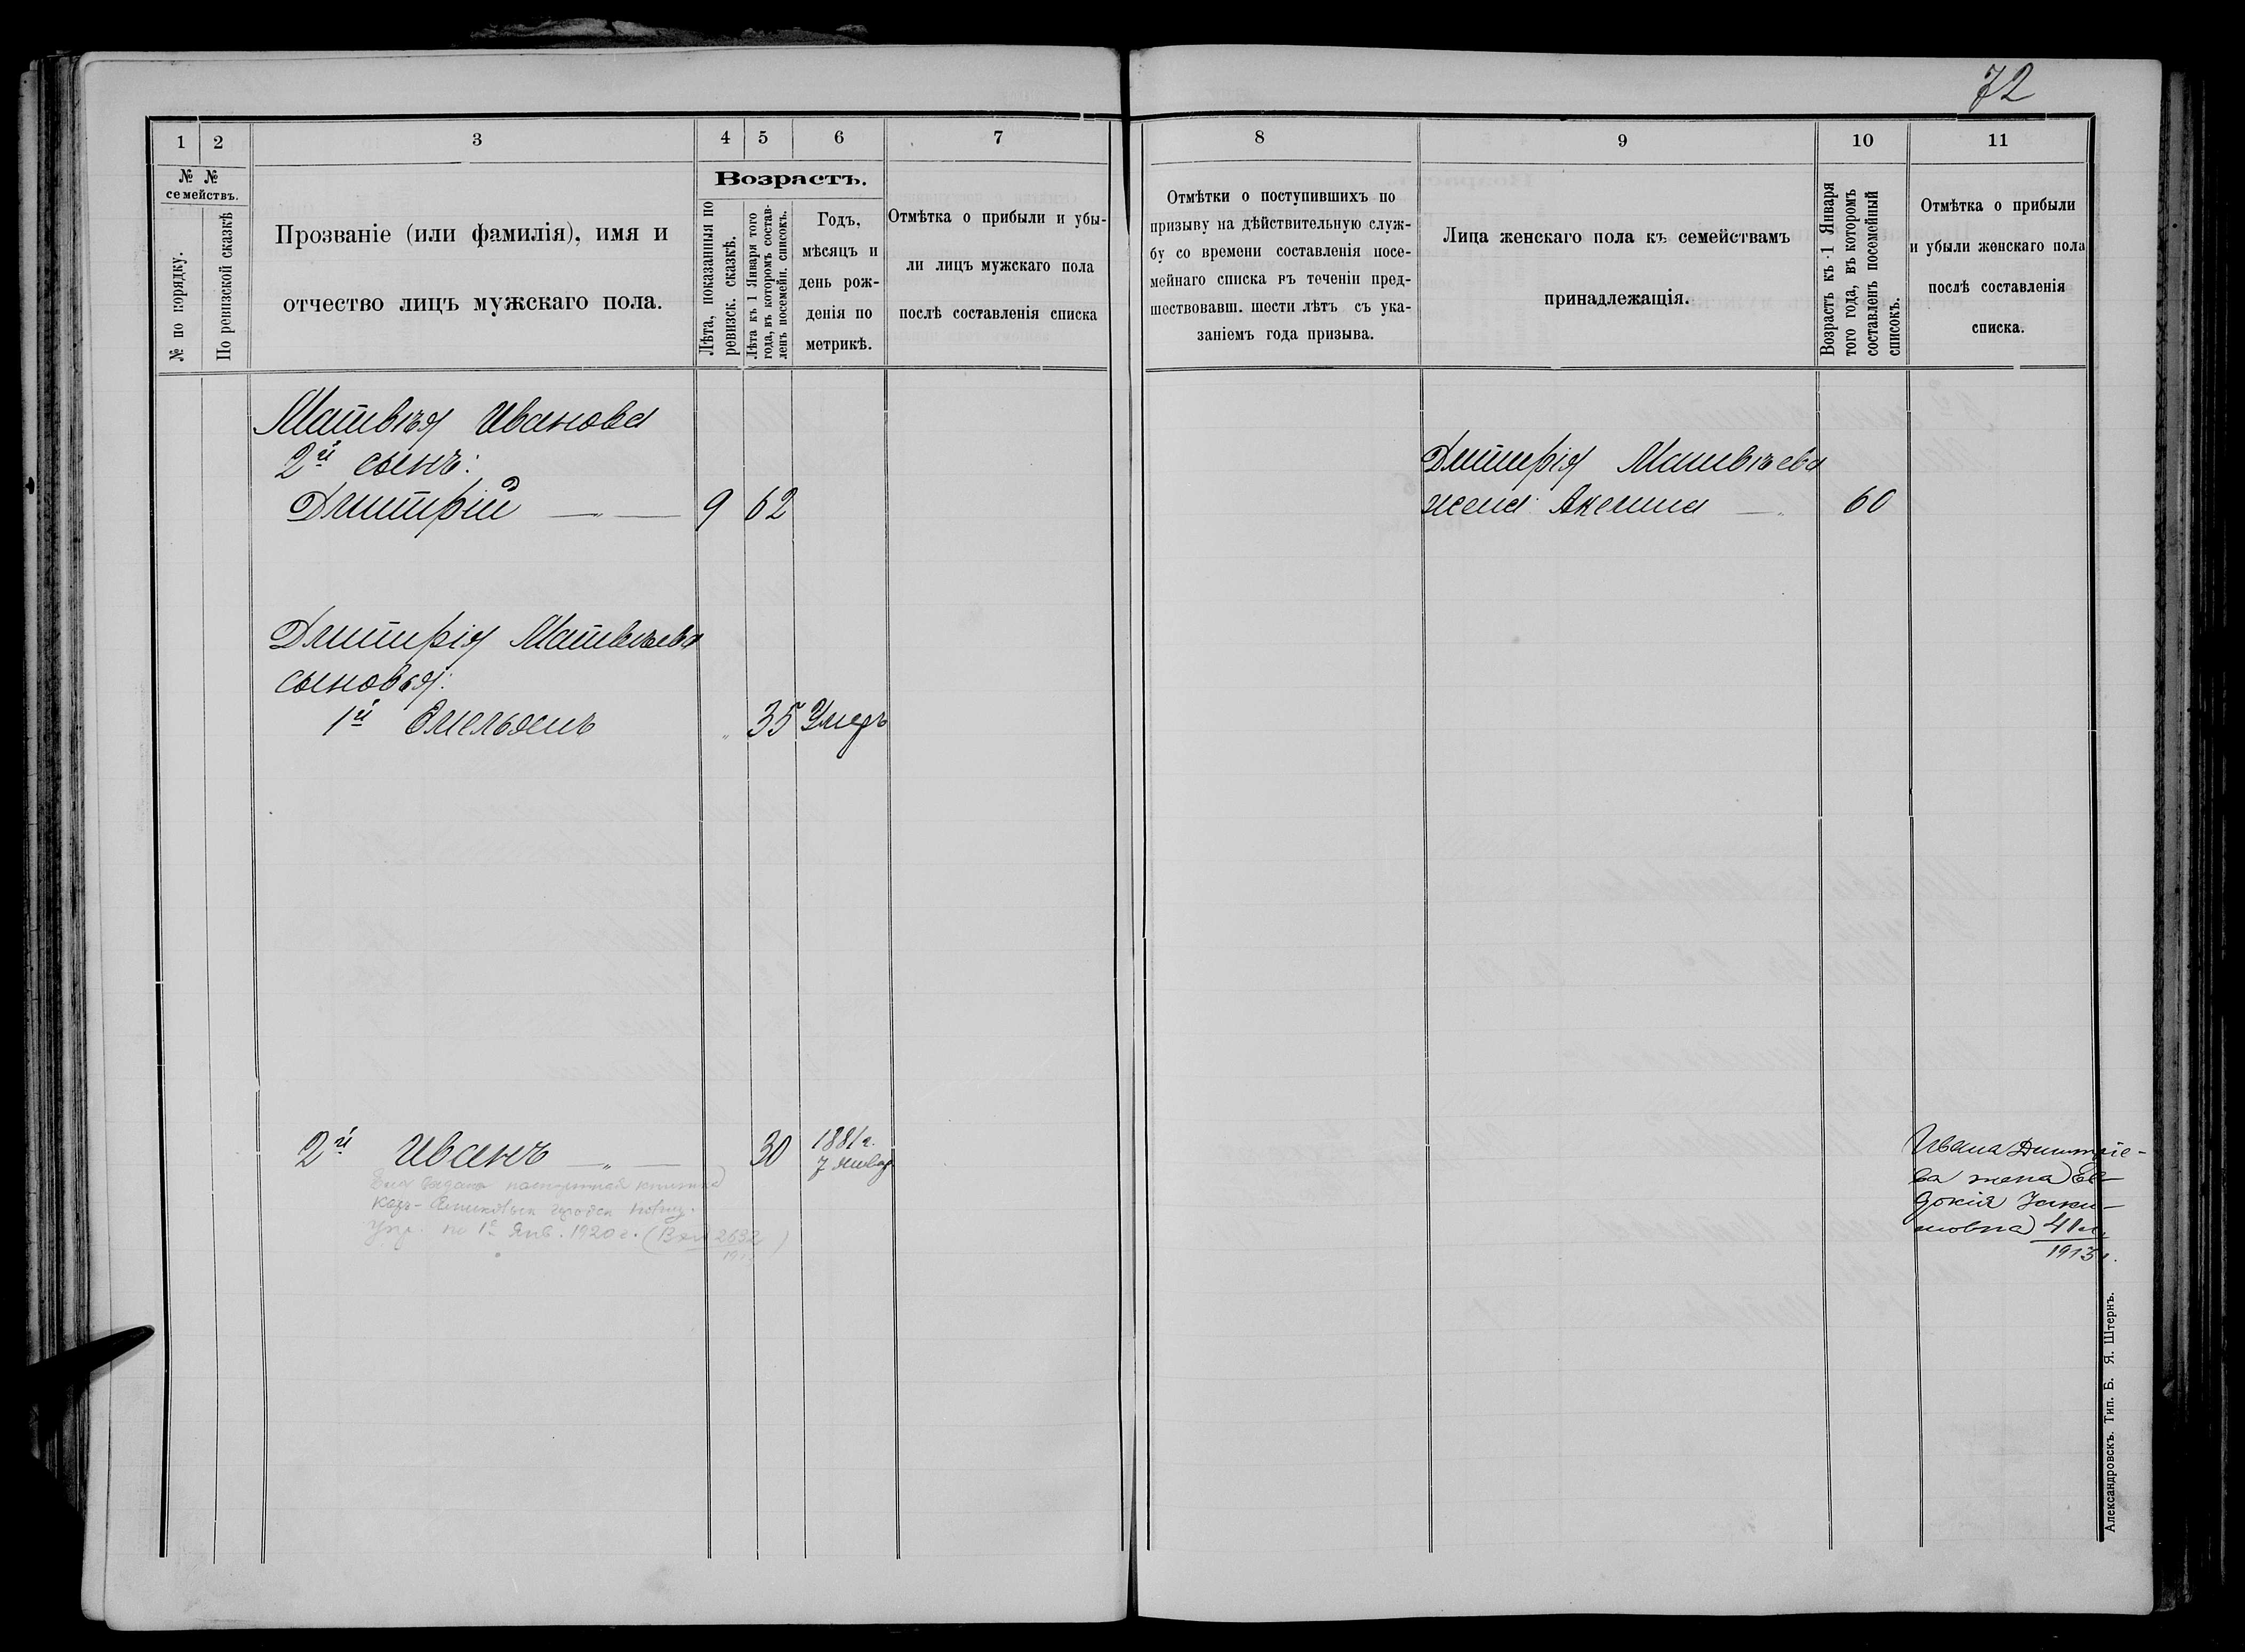 72
1
2
3
4
5
6
7
№ №
семействъ.
№ по порядку.
По ревизской сказкѣ
Прозваніе (или фамилія), имя и
отчество лицъ мужскаго пола.
Возрастъ.
Лѣта, показанныя по
ревизск. сказкѣ.
Лѣта къ 1 Января того
года, въ которомъ состав-
ленъ посемейн. списокъ.
Годъ,
мѣсяцъ и
день рож-
денія по
метрикѣ.
Отмѣтка о прибыли и убы-
ли лицъ мужскаго пола
послѣ составленія списка
Матвѣя Иванова
2й сынъ:
Дмитрій — " — 9 62
Дмитрія Матвѣева
сыновья:
1й Емельянъ " 35 Умеръ
2й Иванъ — " — 30 1881 г.
7 январ
паспортная книжка
Упр. по 1е Янв. 1920 г. (Вх 2632)
8
9
10
11
Отмѣтки о поступившихъ по
призыву на дѣйствительную служ-
бу со времени составленія посе-
мейнаго списка въ теченіи пред-
шествовавш. шести лѣтъ съ ука-
заніемъ года призыва.
Лица женскаго пола къ семействамъ
принадлежащія.
Возрастъ къ 1 Января
того года, въ которомъ
составленъ посемейный
списокъ.
Отмѣтка о прибыли
и убыли женскаго пола
послѣ составленія
списка.
Дмитрія Матвѣева
жена: Акелина — " 60
Ивана Дмитріе-
ва жена Ев-
докія Іоаки-
мовна 41 л.
1913 г.
Александровскъ. Тип. Б. Я. Штернъ.